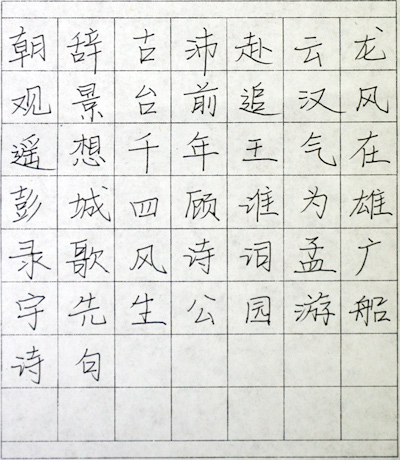 朝辞古沛赴云龙
观景台前追汉风
遥想千年王气在
彭城四顾谁为雄
录歌风诗词孟广
宇先生公园游船
诗句